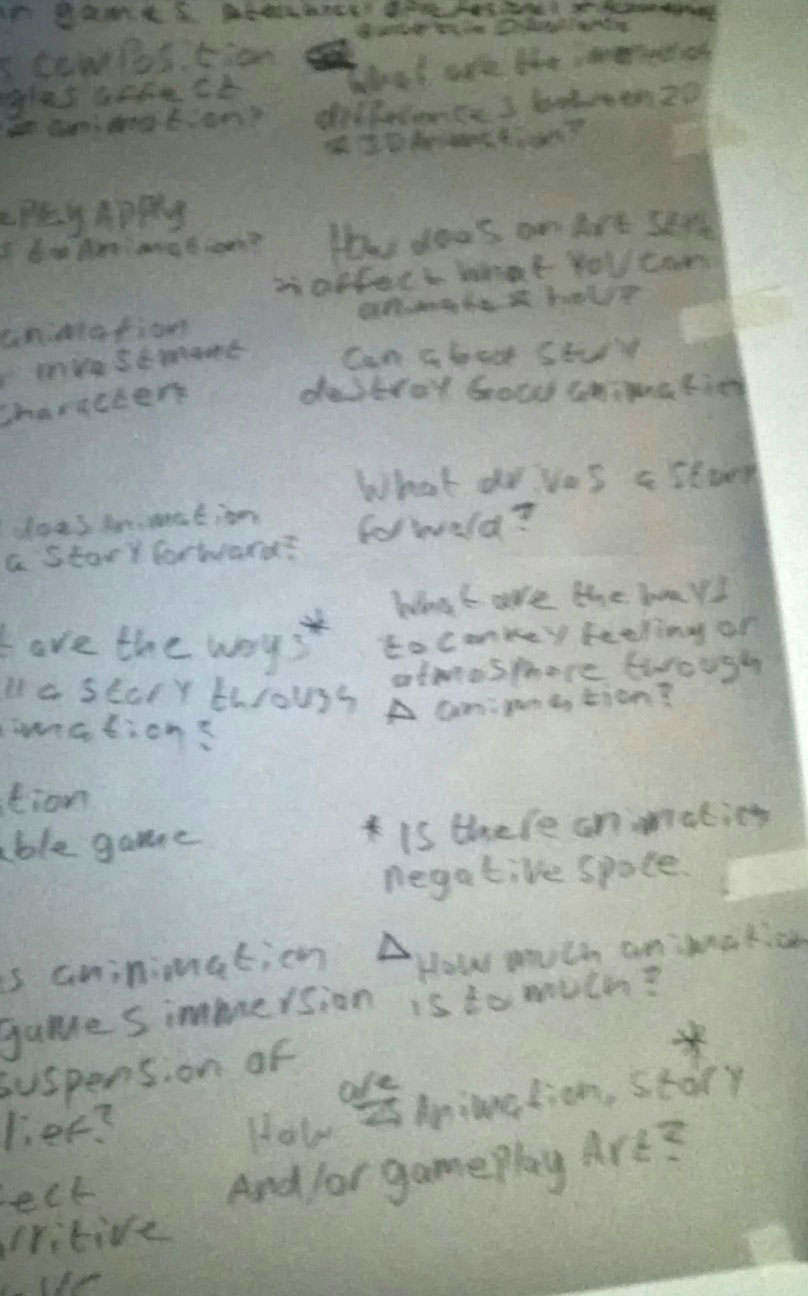 games
composition
affect
animation?
Apply
to Animation?
animation
investment
characters
does animation
a story forward?
are the ways*
a story through
imation?
tion
able game
s aninimation
games immersion
suspension of
lief?
fect
rritive
What are the
differences between 2D
& 3D Animation?
How does an Art Style
affect what you can
animate & how?
Can a bad story
destroy Good animation
What drives a story
forward?
What are the ways
to convey feeling or
atmosphere through
Δ animation?
* Is there animation
negative space.
Δ How much animation
is to much?
*
are
How Animation, story
And/or gameplay Art?